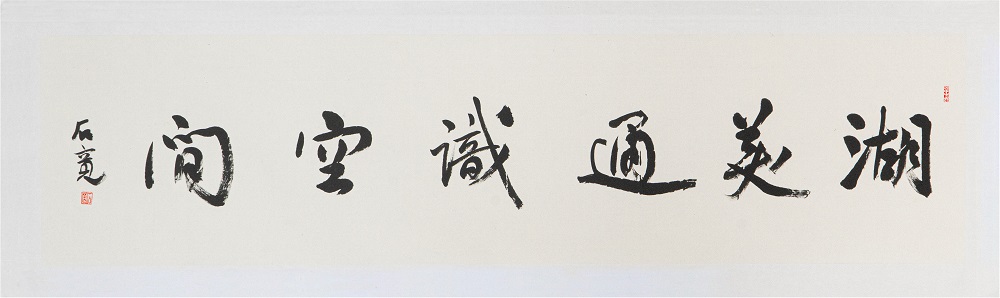 湖美通識空間
石竟